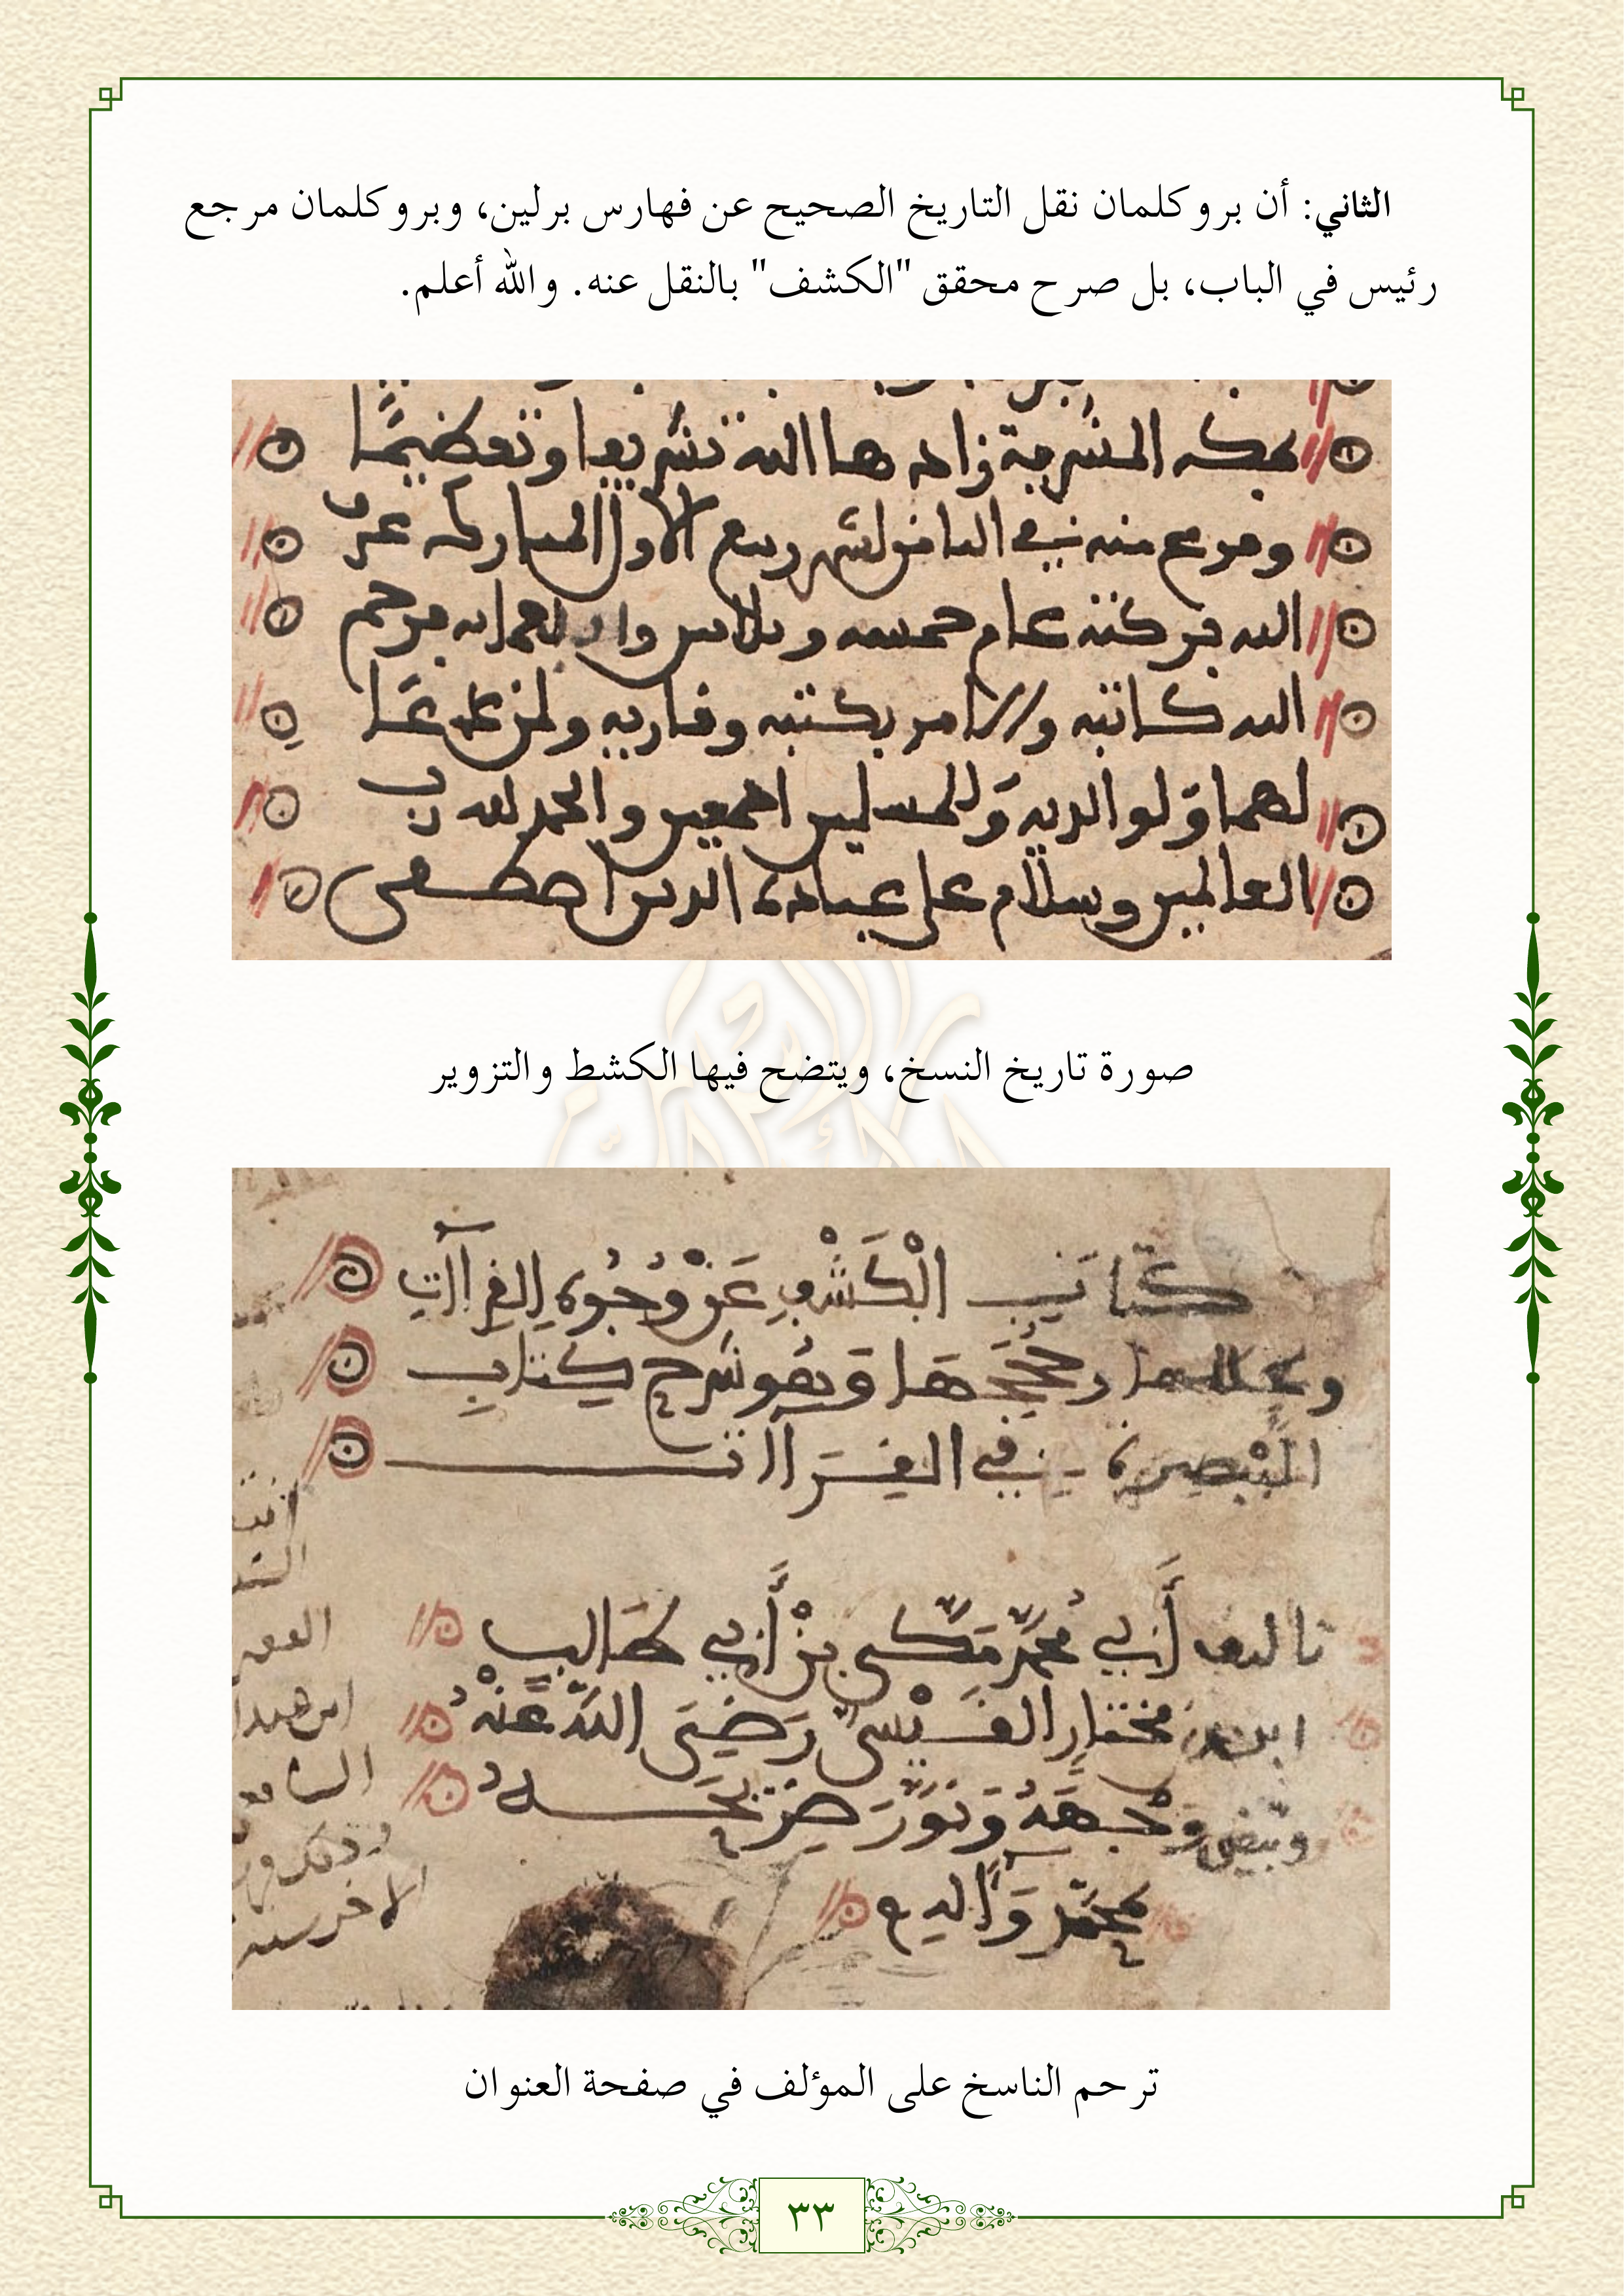 الثاني: أن بروكلمان نقل التاريخ الصحيح عن فهارس برلين، وبروكلمان مرجع
رئيس في الباب، بل صرح محقق "الكشف" بالنقل عنه. والله أعلم.
بمكة المشرفة زادها الله تشريفا وتعظيما
وفرغ منه في الثامن لشهر ربيع الأول المبارك عرف
الله بركته عام خمسة وثلاثين و
الله كاتبه والآمر بكتبه وقاريه ولمن دعا
لهما ولوالديه وللمسلمين أجمعين والحمد لله رب
العالمين وسلام على عباده الذين اصطفى
صورة تاريخ النسخ، ويتضح فيها الكشط والتزوير
كتاب الْكَشْفِ عَنْ وُجُوهِ القرآآت
وعللها وحججها وهو شرح كتاب
التبصرة في القرآآت
تاليف أبي محمد مكي بن أبي طالب
ابن مختار القيسي رضي الله عنه
وبيض وجهه ونور ضريحه
بمحمد وآله
ترحم الناسخ على المؤلف في صفحة العنوان
٣٣